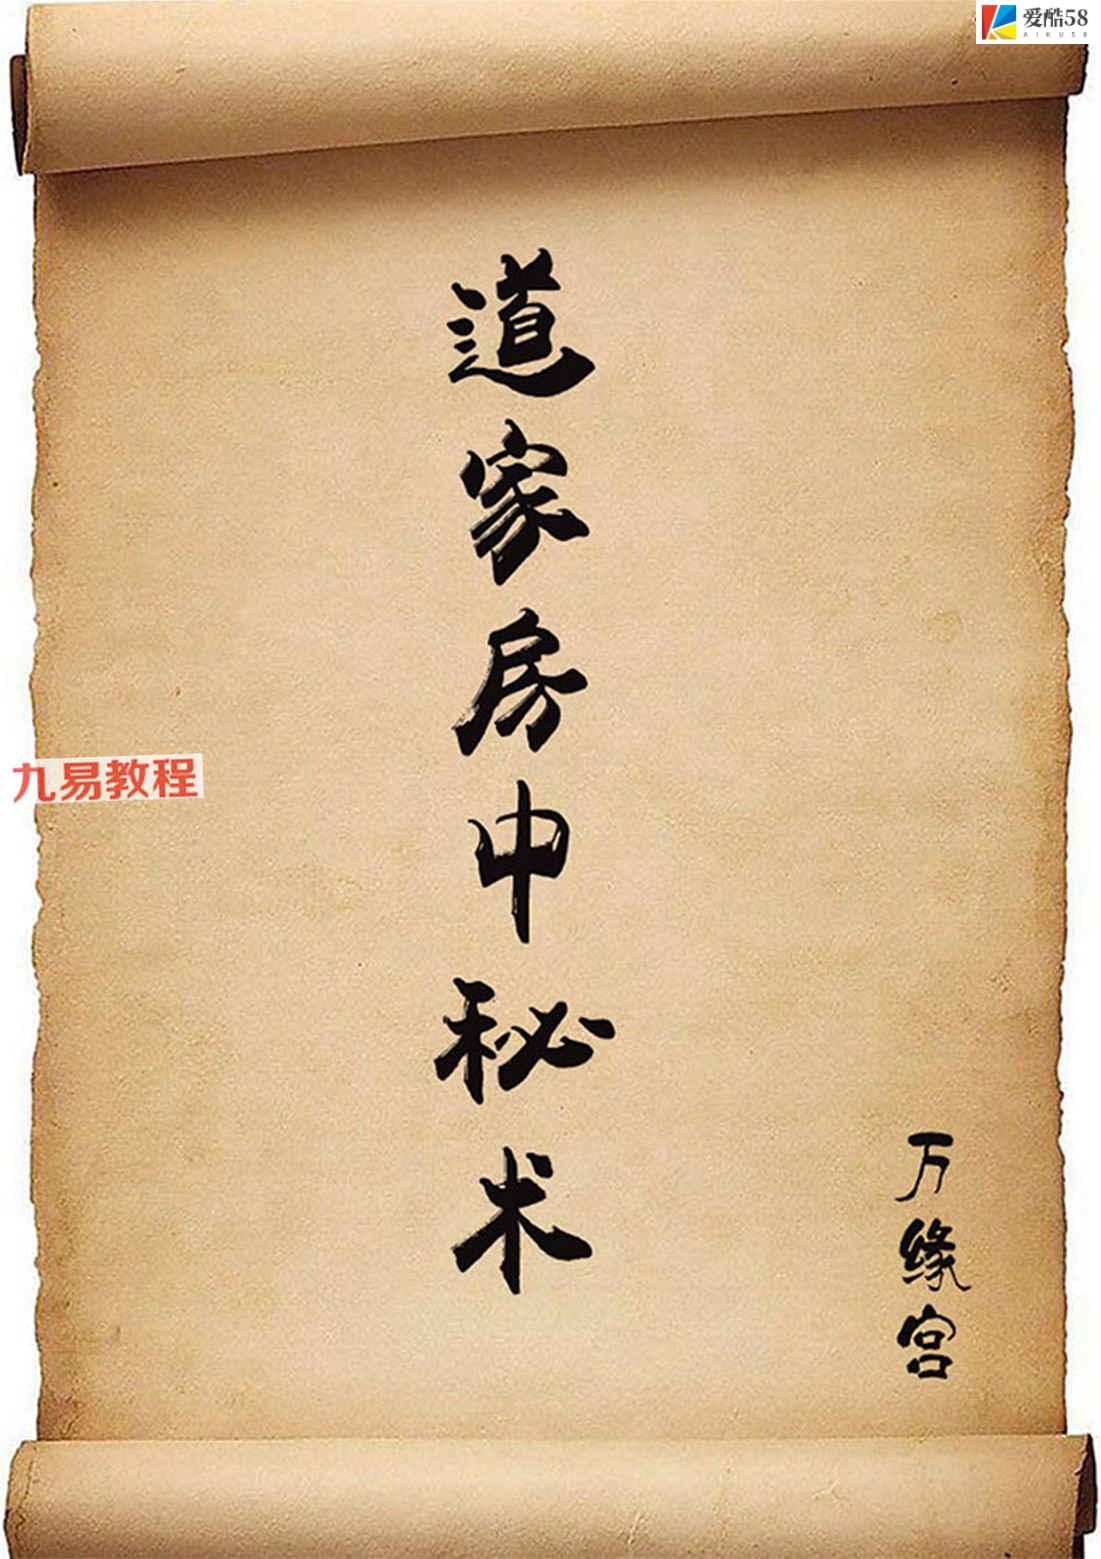 爱酷58
AIKU58
道家房中秘术
九易教程
万缘宫